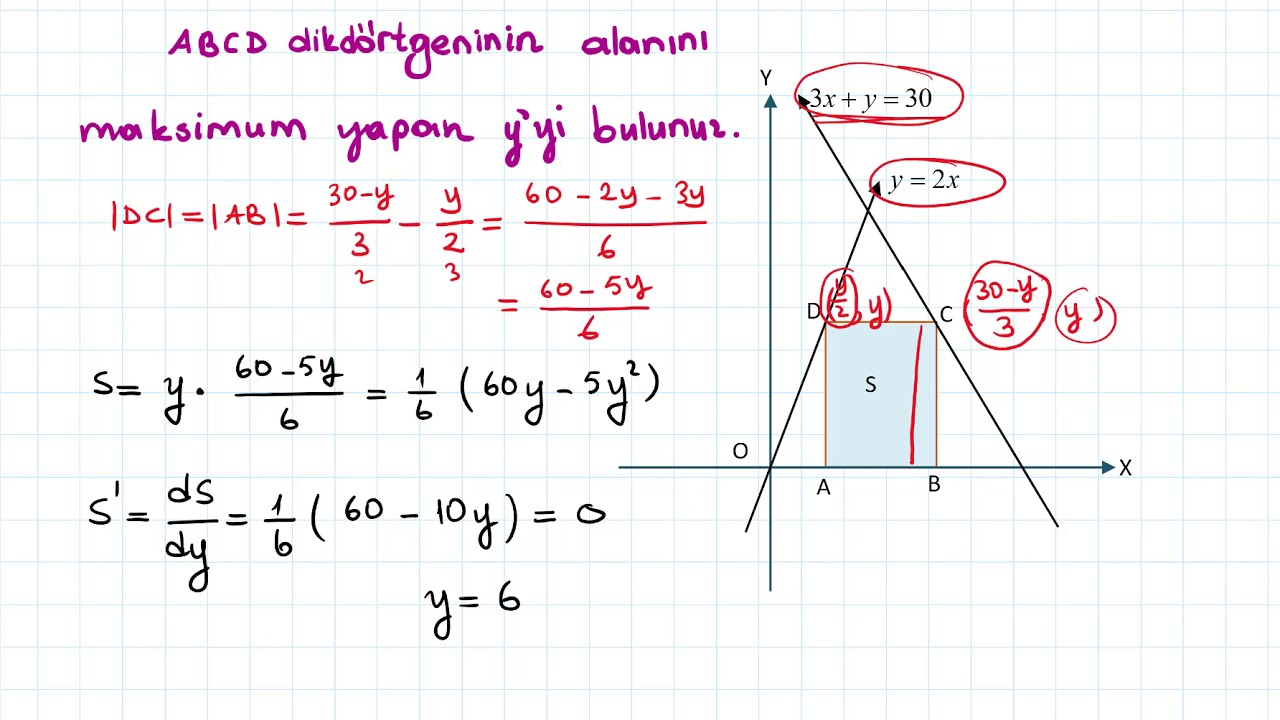 ABCD dikdörtgeninin alanını
maksimum yapan y'yi bulunuz.
|DC| = |AB| = \frac{30-y}{3} - \frac{y}{2} = \frac{60-2y-3y}{6}
2 3
= \frac{60-5y}{6}
S = y \cdot \frac{60-5y}{6} = \frac{1}{6} (60y - 5y^2)
S' = \frac{dS}{dy} = \frac{1}{6} (60 - 10y) = 0
y = 6
Y
3x + y = 30
y = 2x
D (\frac{y}{2}, y)
C (\frac{30-y}{3}, y)
S
O
X
A
B